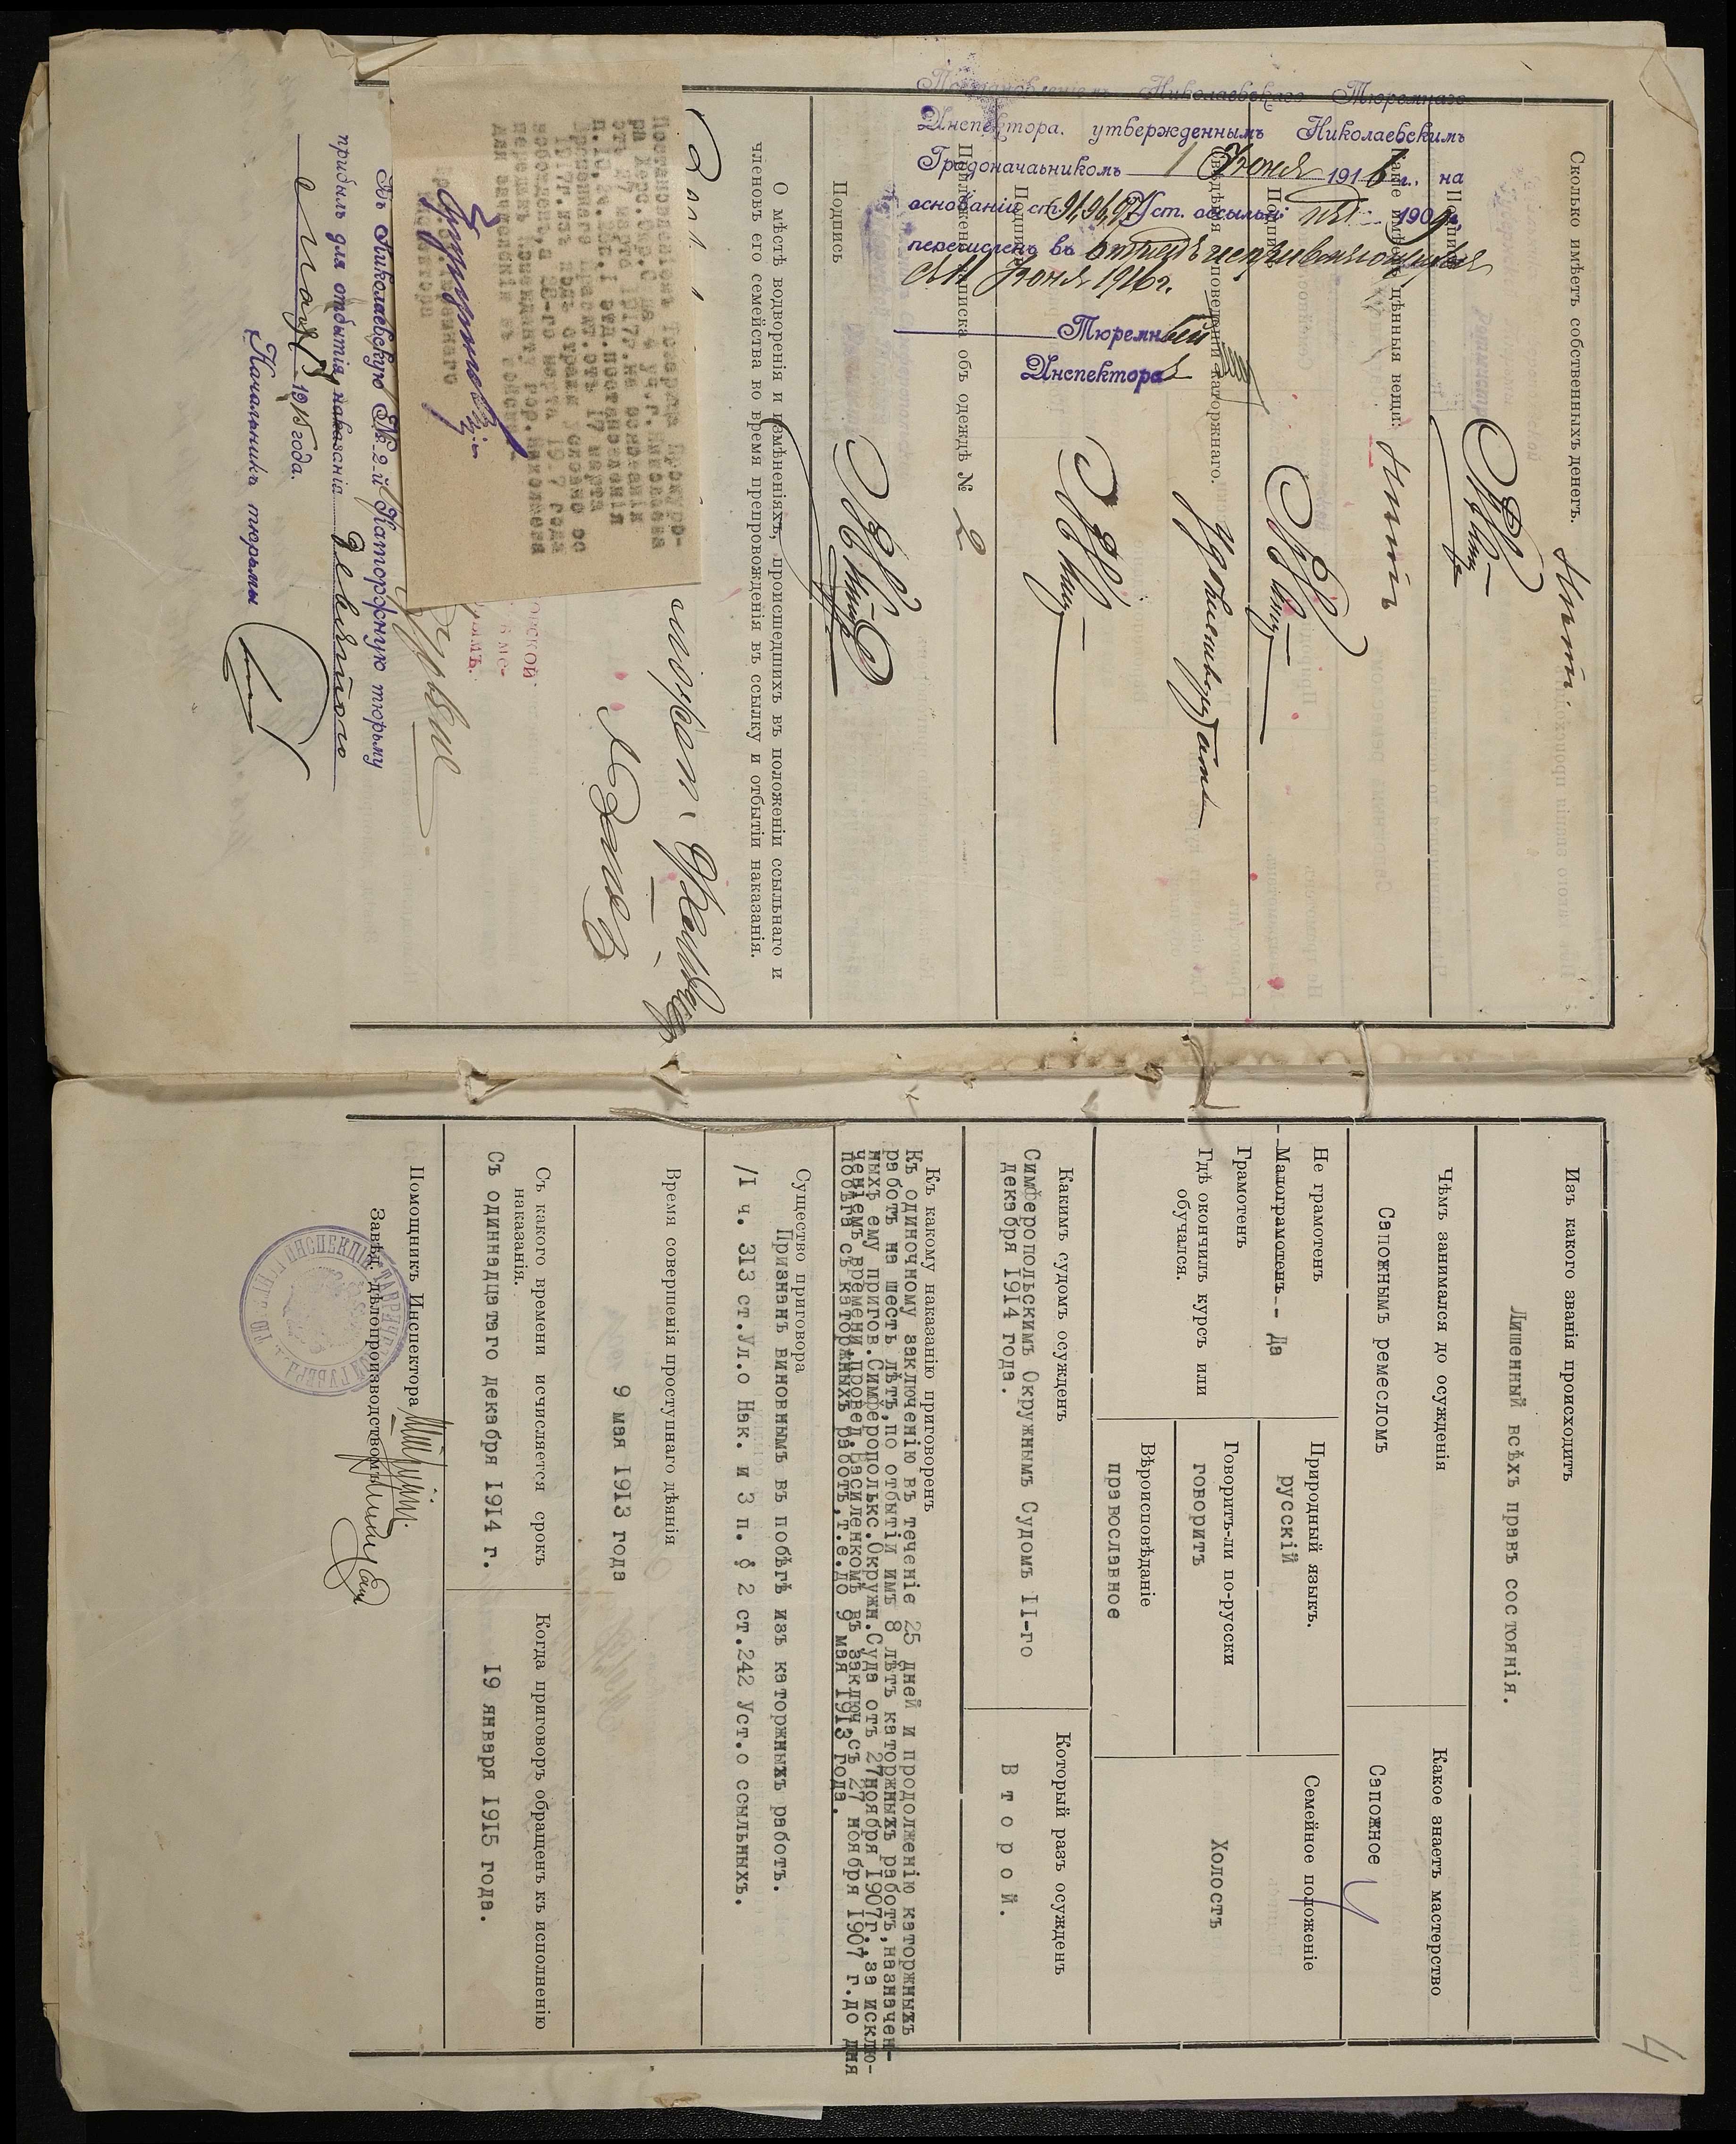 Сколько имѣетъ собственныхъ денегъ. Нѣтъ
Подпись
Какія имѣетъ цѣнныя вещи: Нѣтъ
Подпись
Свѣдѣнія о поведеніи каторжнаго. Удовлетворит
Подпись
Приложенія: Подписка объ одеждѣ № 2
Подпись
О мѣстѣ водворенія и измѣненіяхъ, происшедшихъ въ положеніи ссыльнаго и
членовъ его семейства во время препровожденія въ ссылку и отбытіи наказанія.
Постановленіемъ Николаевскаго Тюремнаго
Инспектора, утвержденнымъ Николаевскимъ
Градоначальникомъ 1 Іюня 1916 г., на
основаніи ст. 91, 96, 97 Уст. о ссыльн. изд. 1909 г.,
перечисленъ въ отрядъ исправляющихся
съ 11 Іюня 1916 г.
Тюремный
Инспекторъ
Постановленіемъ Товарища Прокуро-
ра Херс. Окр. С да 4 уч. г. Николаева
отъ 27 марта 1917 г. на основаніи
п. 10, отд. I сен. постановленія
Временнаго Правит. отъ 17 марта
1917 г. изъ подъ стражи условно ос
вобожденъ, а 28-го марта 1917 года
переданъ Коменданту гор. Николаева
для зачисленія въ
Въ Николаевскую № 2-й Каторжную тюрьму
прибылъ для отбытія наказанія девятого
Марта 1915 года.
Начальникъ тюрьмы
4
Изъ какого званія происходитъ
Лишенный всѣхъ правъ состоянія.
Чѣмъ занимался до осужденія
Сапожнымъ ремесломъ
Какое знаетъ мастерство
Сапожное
Не грамотенъ
Малограмотенъ -- да
Грамотенъ
Гдѣ окончилъ курсъ или
обучался.
Природный языкъ.
русскій
Говоритъ-ли по-русски
говоритъ
Вѣроисповѣданіе
православное
Семейное положеніе
Холостъ
Какимъ судомъ осужденъ
Симферопольскимъ Окружнымъ Судомъ II-го
декабря 1914 года.
Который разъ осужденъ
Второй.
Къ какому наказанію приговоренъ
Къ одиночному заключенію въ теченіе 25 дней и продолженію каторжныхъ
работъ на шесть лѣтъ, по отбытіи имъ 8 лѣтъ каторжныхъ работъ, назначен-
ныхъ ему пригов. Симферопольск. Окружн. Суда отъ 27 ноября 1907 г., за исклю-
ченіемъ времени, провед. Василенкомъ въ заключ. съ 27 ноября 1907 г. до дня
побѣга съ каторжныхъ работъ, т. е. до 9 мая 1913 года.
Существо приговора
Признанъ виновнымъ въ побѣгѣ изъ каторжныхъ работъ.
/I ч. 313 ст. Ул. о Нак. и 3 п. § 2 ст. 242 Уст. о ссыльныхъ.
Время совершенія проступнаго дѣянія
9 мая 1913 года
Съ какого времени исчисляется срокъ
наказанія.
Съ одиннадцатаго декабря 1914 г.
Когда приговоръ обращенъ къ исполненію
19 января 1915 года.
Помощникъ Инспектора
Завѣд. дѣлопроизводствомъ